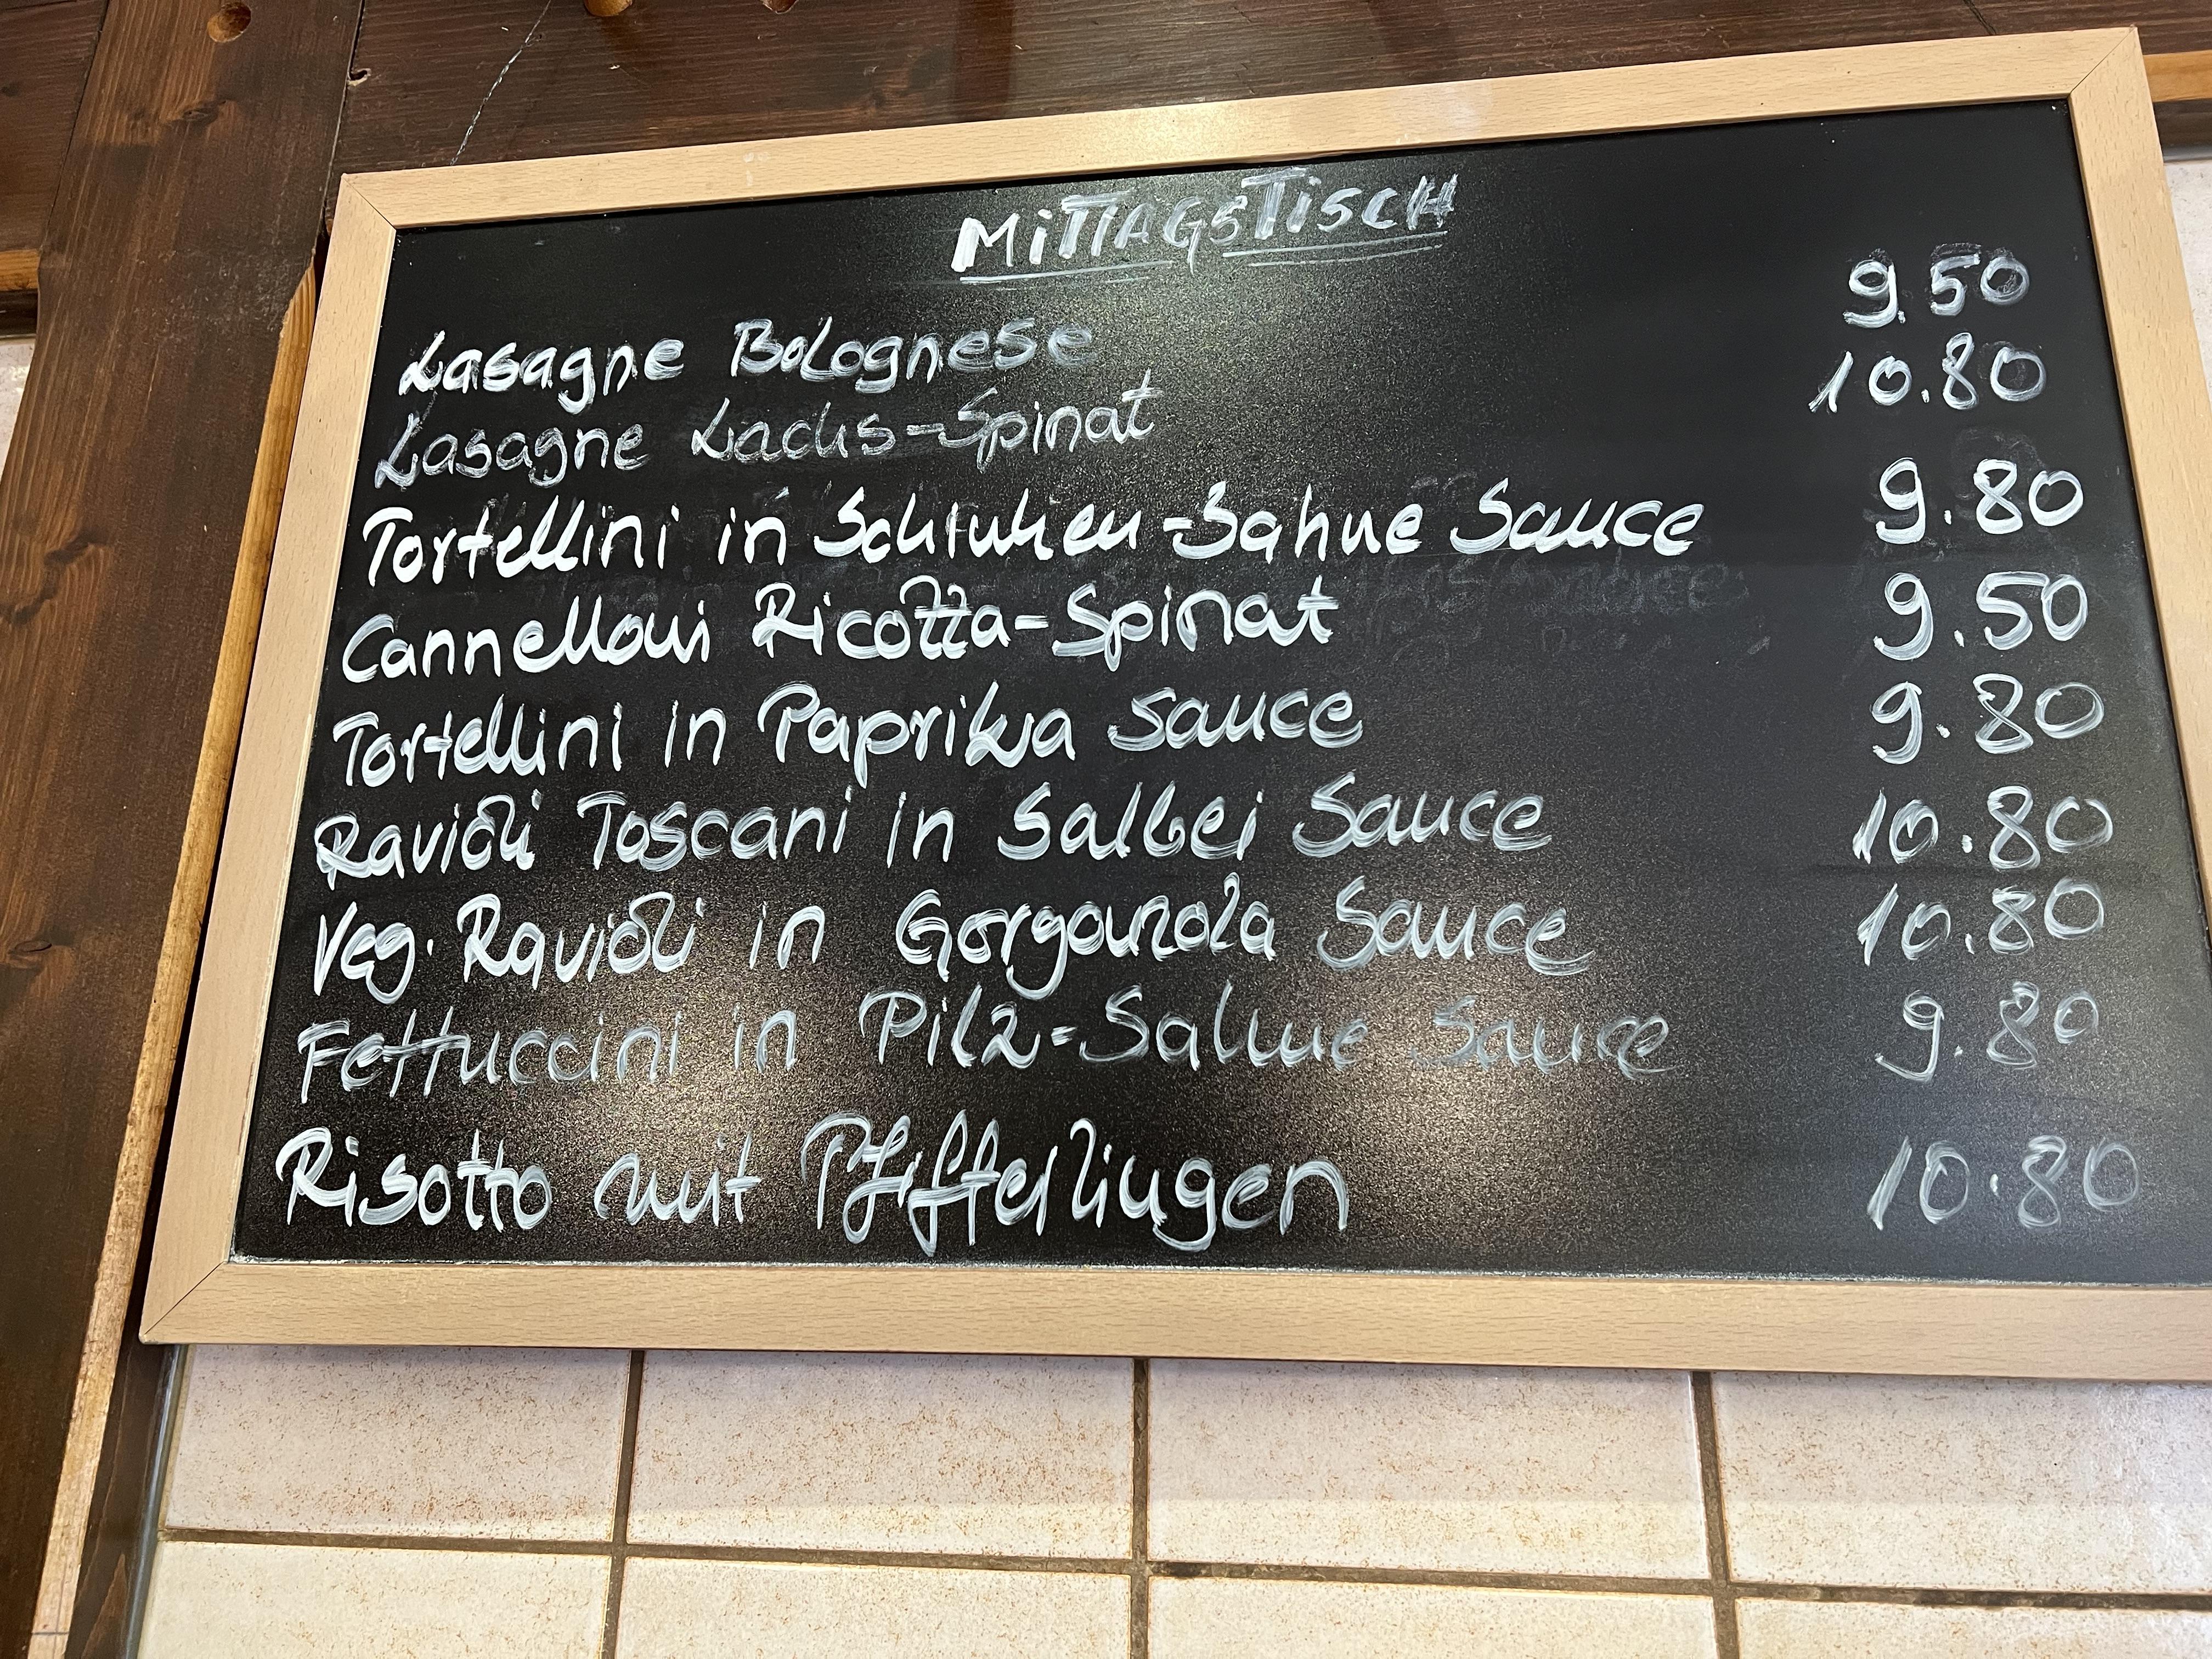 MiTTAGSTiSCH
Lasagne Bolognese 9.50
Lasagne Lachs-Spinat 10.80
Tortellini in Schinken-Sahne Sauce 9.80
Cannelloni Ricotta-Spinat 9.50
Tortellini in Paprika Sauce 9.80
Ravioli Toscani in Salbei Sauce 10.80
Veg. Ravioli in Gorgonzola Sauce 10.80
Fettuccini in Pilz-Sahne Sauce 9.80
Risotto mit Pfifferlingen 10.80